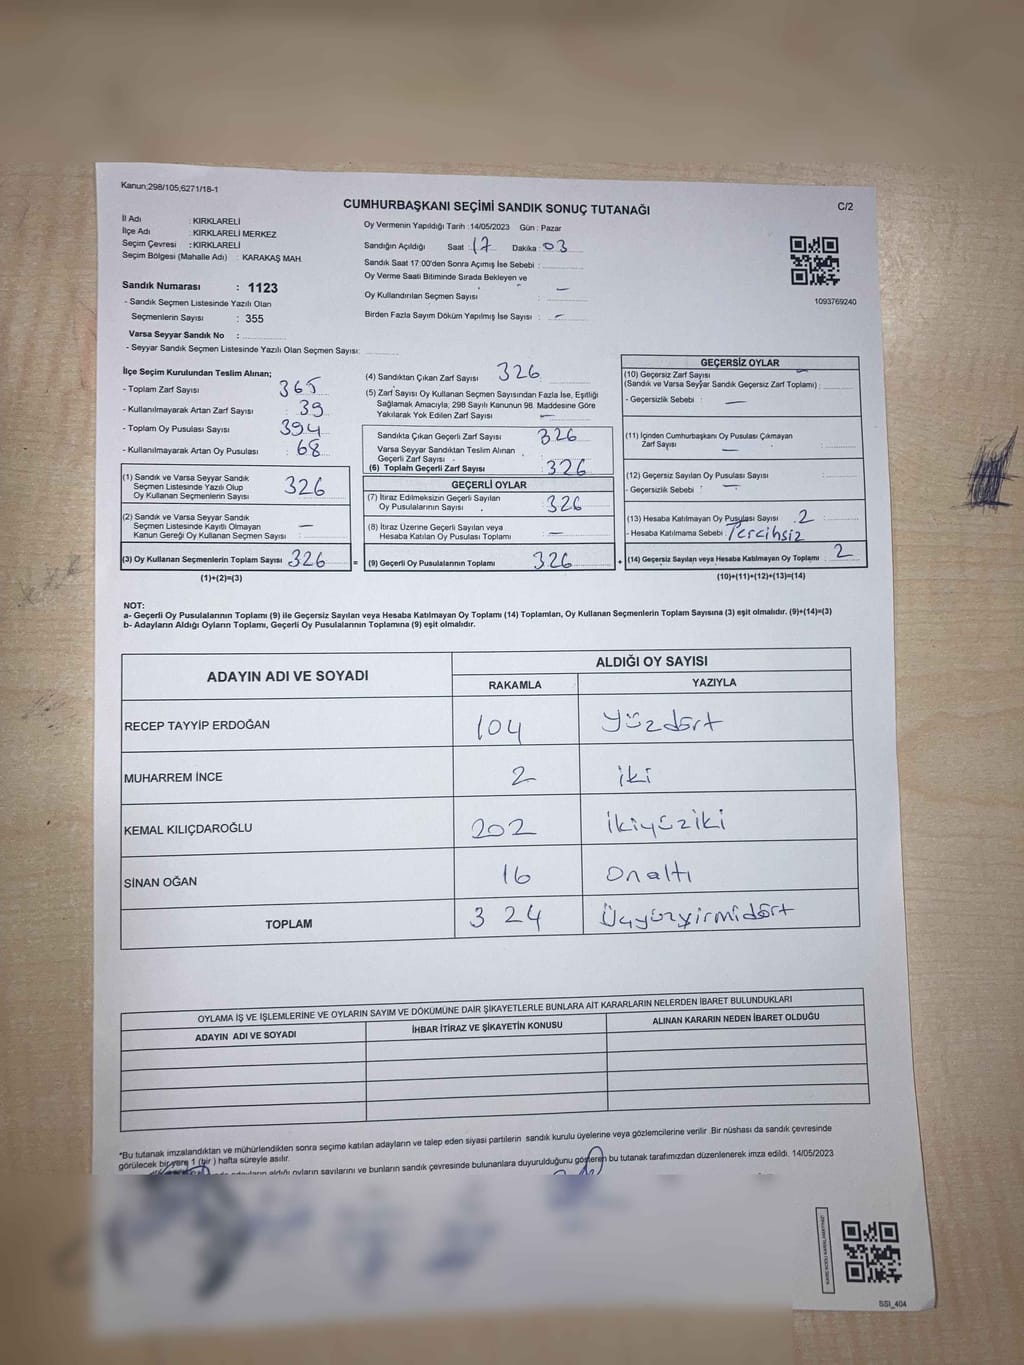 Kanun;298/105,6271/18-1
CUMHURBAŞKANI SEÇİMİ SANDIK SONUÇ TUTANAĞI
C/2
İl Adı : KIRKLARELİ
İlçe Adı : KIRKLARELİ MERKEZ
Seçim Çevresi : KIRKLARELİ
Seçim Bölgesi (Mahalle Adı) : KARAKAŞ MAH.
Sandık Numarası : 1123
- Sandık Seçmen Listesinde Yazılı Olan
Seçmenlerin Sayısı : 355
Varsa Seyyar Sandık No :
- Seyyar Sandık Seçmen Listesinde Yazılı Olan Seçmen Sayısı:
Oy Vermenin Yapıldığı Tarih :14/05/2023 Gün : Pazar
Sandığın Açıldığı Saat : 17 Dakika : 03
Sandık Saat 17:00'den Sonra Açımış İse Sebebi :
Oy Verme Saati Bitiminde Sırada Bekleyen ve
Oy Kullandırılan Seçmen Sayısı : —
Birden Fazla Sayım Döküm Yapılmış İse Sayısı : –
1093769240
İlçe Seçim Kurulundan Teslim Alınan;
- Toplam Zarf Sayısı : 365
- Kullanılmayarak Artan Zarf Sayısı : 39
- Toplam Oy Pusulası Sayısı : 394
- Kullanılmayarak Artan Oy Pusulası : 68
(1) Sandık ve Varsa Seyyar Sandık
Seçmen Listesinde Yazılı Olup
Oy Kullanan Seçmenlerin Sayısı 326
(2) Sandık ve Varsa Seyyar Sandık
Seçmen Listesinde Kayıtlı Olmayan
Kanun Gereği Oy Kullanan Seçmen Sayısı : —
(3) Oy Kullanan Seçmenlerin Toplam Sayısı 326
(1)+(2)=(3)
=
(4) Sandıktan Çıkan Zarf Sayısı : 326
(5) Zarf Sayısı Oy Kullanan Seçmen Sayısından Fazla İse, Eşitliği
Sağlamak Amacıyla, 298 Sayılı Kanunun 98. Maddesine Göre
Yakılarak Yok Edilen Zarf Sayısı : —
Sandıkta Çıkan Geçerli Zarf Sayısı : 326
Varsa Seyyar Sandıktan Teslim Alınan
Geçerli Zarf Sayısı :
(6) Toplam Geçerli Zarf Sayısı : 326
GEÇERLİ OYLAR
(7) İtiraz Edilmeksizin Geçerli Sayılan
Oy Pusulalarının Sayısı : 326
(8) İtiraz Üzerine Geçerli Sayılan veya
Hesaba Katılan Oy Pusulası Toplamı : —
(9) Geçerli Oy Pusulalarının Toplamı : 326
+
GEÇERSİZ OYLAR
(10) Geçersiz Zarf Sayısı
(Sandık ve Varsa Seyyar Sandık Geçersiz Zarf Toplamı) : —
- Geçersizlik Sebebi : —
(11) İçinden Cumhurbaşkanı Oy Pusulası Çıkmayan
Zarf Sayısı : —
(12) Geçersiz Sayılan Oy Pusulası Sayısı :
- Geçersizlik Sebebi : —
(13) Hesaba Katılmayan Oy Pusulası Sayısı : 2
- Hesaba Katılmama Sebebi : Tercihsiz
(14) Geçersiz Sayılan veya Hesaba Katılmayan Oy Toplamı : 2
(10)+(11)+(12)+(13)=(14)
NOT:
a- Geçerli Oy Pusulalarının Toplamı (9) ile Geçersiz Sayılan veya Hesaba Katılmayan Oy Toplamı (14) Toplamları, Oy Kullanan Seçmenlerin Toplam Sayısına (3) eşit olmalıdır. (9)+(14)=(3)
b- Adayların Aldığı Oyların Toplamı, Geçerli Oy Pusulalarının Toplamına (9) eşit olmalıdır.
ADAYIN ADI VE SOYADI
ALDIĞI OY SAYISI
RAKAMLA YAZIYLA
RECEP TAYYİP ERDOĞAN 104 Yüzdört
MUHARREM İNCE 2 iki
KEMAL KILIÇDAROĞLU 202 İkiyüziki
SİNAN OĞAN 16 Onaltı
TOPLAM 324 Üçyüzyirmidört
OYLAMA İŞ VE İŞLEMLERİNE VE OYLARIN SAYIM VE DÖKÜMÜNE DAİR ŞİKAYETLERLE BUNLARA AİT KARARLARIN NELERDEN İBARET BULUNDUKLARI
ADAYIN ADI VE SOYADI İHBAR İTİRAZ VE ŞİKAYETİN KONUSU ALINAN KARARIN NEDEN İBARET OLDUĞU
*Bu tutanak imzalandıktan ve mühürlendikten sonra seçime katılan adayların ve talep eden siyasi partilerin sandık kurulu üyelerine veya gözlemcilerine verilir. Bir nüshası da sandık çevresinde
görülecek bir yere 1 (bir ) hafta süreyle asılır.
adayların aldığı oyların sayılarını ve bunların sandık çevresinde bulunanlara duyurulduğunu gösteren bu tutanak tarafımızdan düzenlenerek imza edildi. 14/05/2023
SSI_404